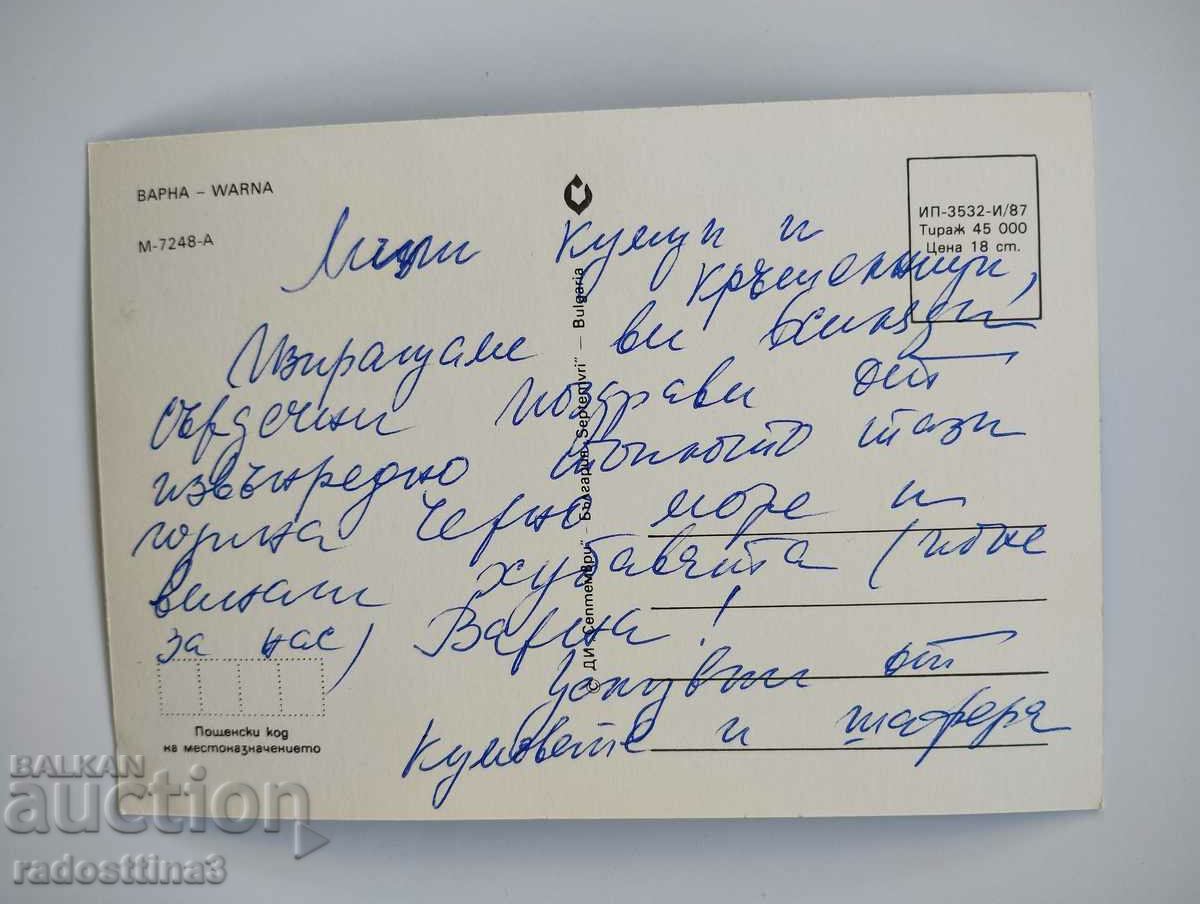 ВАРНА – WARNA
М-7248-А
ИП-3532-И/87
Тираж 45 000
Цена 18 ст.
Мили кумци и
кръщелници,
Изпращаме ви всички
сърдечни поздрави от
извънредно топлото тази
година Черно море и
винаги хубавята (поне
за нас) Варна!
Целувки от
Кумовете и шафера
© ДИ „Септември“ – България „Septemvri“ – Bulgaria
Пощенски код
на местоназначението
BALKAN
auction
radosttina3